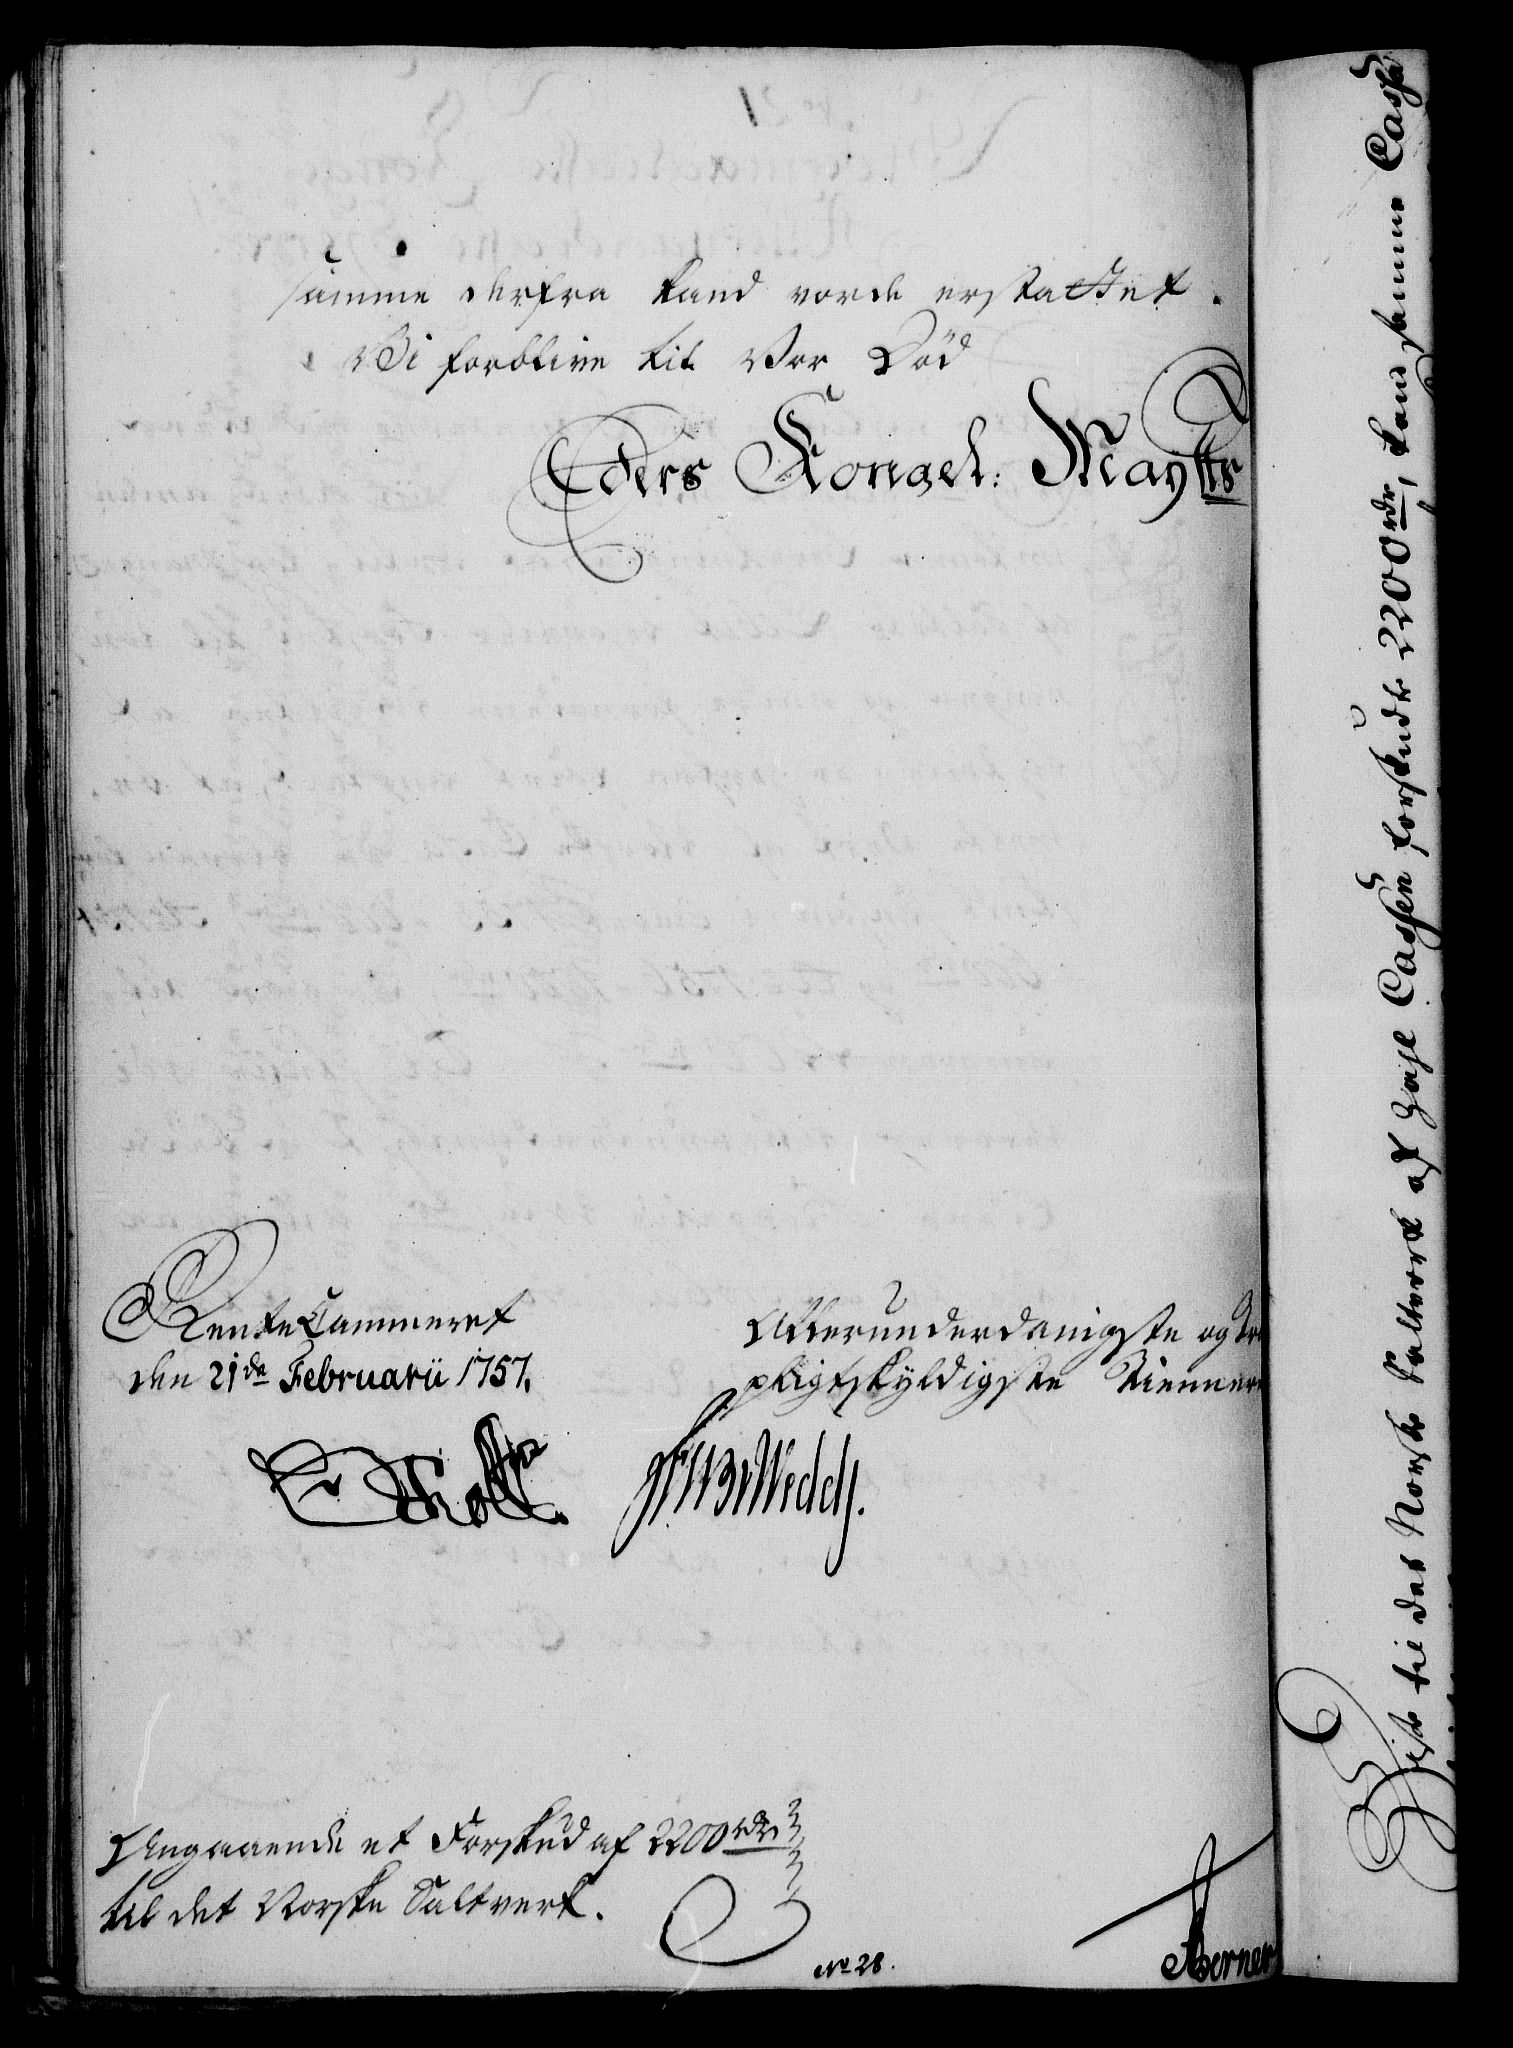 samme derfra kand vorde erstattet.
Vi forblive til Vor Död
Eders Kongel: Maytts
RenteCammeret
den 21de Februarii 1757.
Allerunderdanigste og
pligtskyldigste Tienner
Angaaende et Forskud af 2200 rdr
til det Norske Saltverk.
No 28.
Berner
til det Norske Saltverk af Cassen forskudt 2200 rdr, kand samme Cassa